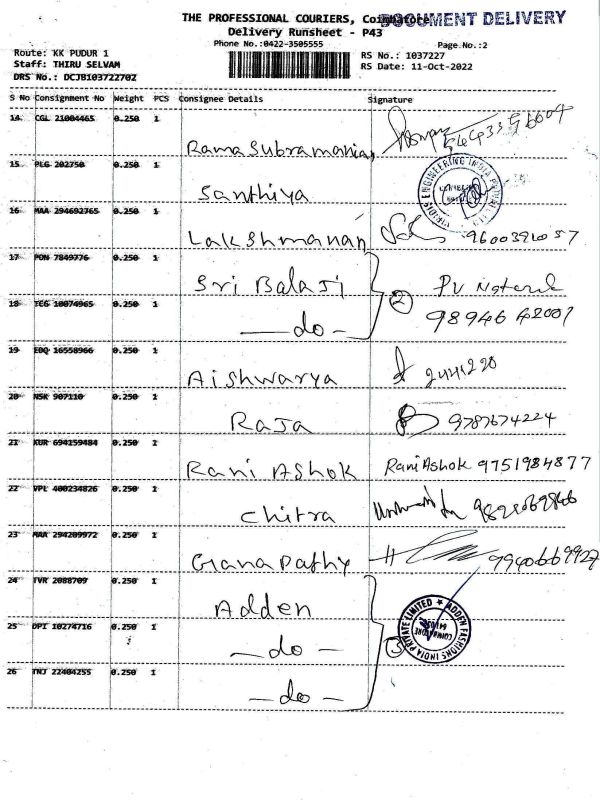 THE PROFESSIONAL COURIERS, Coimbatore
DOCUMENT DELIVERY
Delivery Runsheet - P43
Phone No.:0422-3505555
Page No.:2
Route: KK PUDUR 1
RS No.: 1037227
Staff: THIRU SELVAM
RS Date: 11-Oct-2022
DRS No.: DCJB103722702
S No Consignment No Weight PCS Consignee Details Signature
14 CGL 21004465 0.250 1
Rama Subramanian
15 PLG 202750 0.250 1
Santhiya
16 MAA 294692765 0.250 1
Lakshmanan
17 PON 7849776 0.250 1
Sri Balaji
2
18 TCG 10074965 0.250 1
do
98946 42007
19 EDQ 16558966 0.250 1
Aishwarya
20 NSK 907110 0.250 1
Raja
9787674224
21 KUR 694159484 0.250 1
Rani Ashok Rani Ashok 9751984877
22 VPL 400234826 0.250 1
Chitra
23 MAA 294209972 0.250 1
Ganapathy
24 TVR 2088709 0.250 1
Adden
ADDEN FASHIONS INDIA PRIVATE LIMITED
COIMBATORE
25 DPI 10274716 0.250 1
do
3
26 TNJ 22404255 0.250 1
do